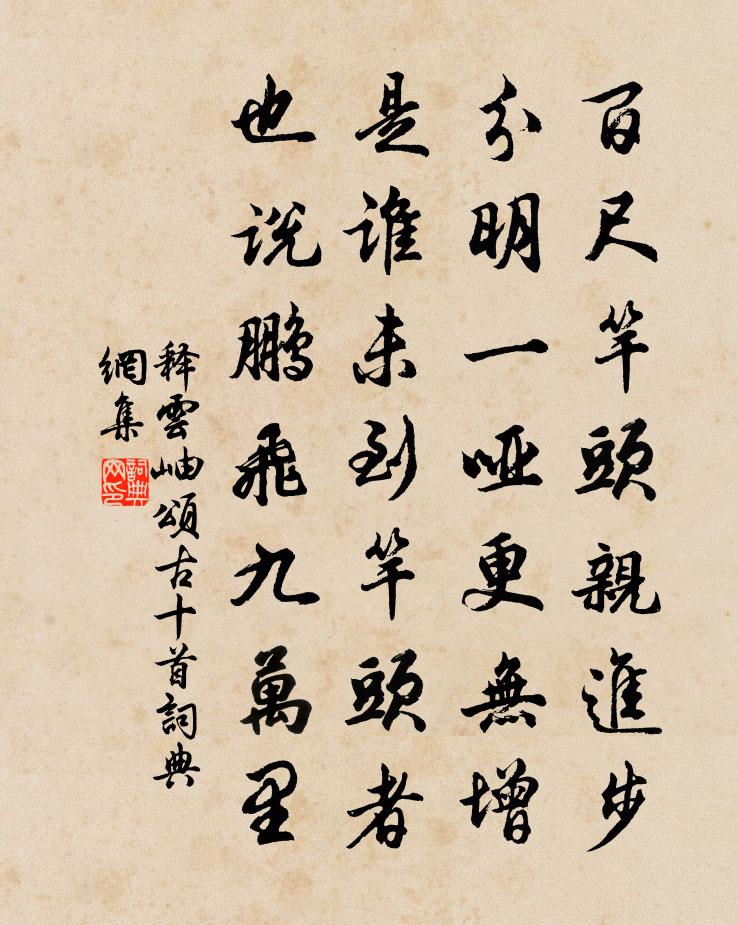 百尺竿頭親進步
分明一啞更無增
是誰未到竿頭者
也说鹏飛九萬里
释雲岫頌古十首詞典
網集
詞典
网印